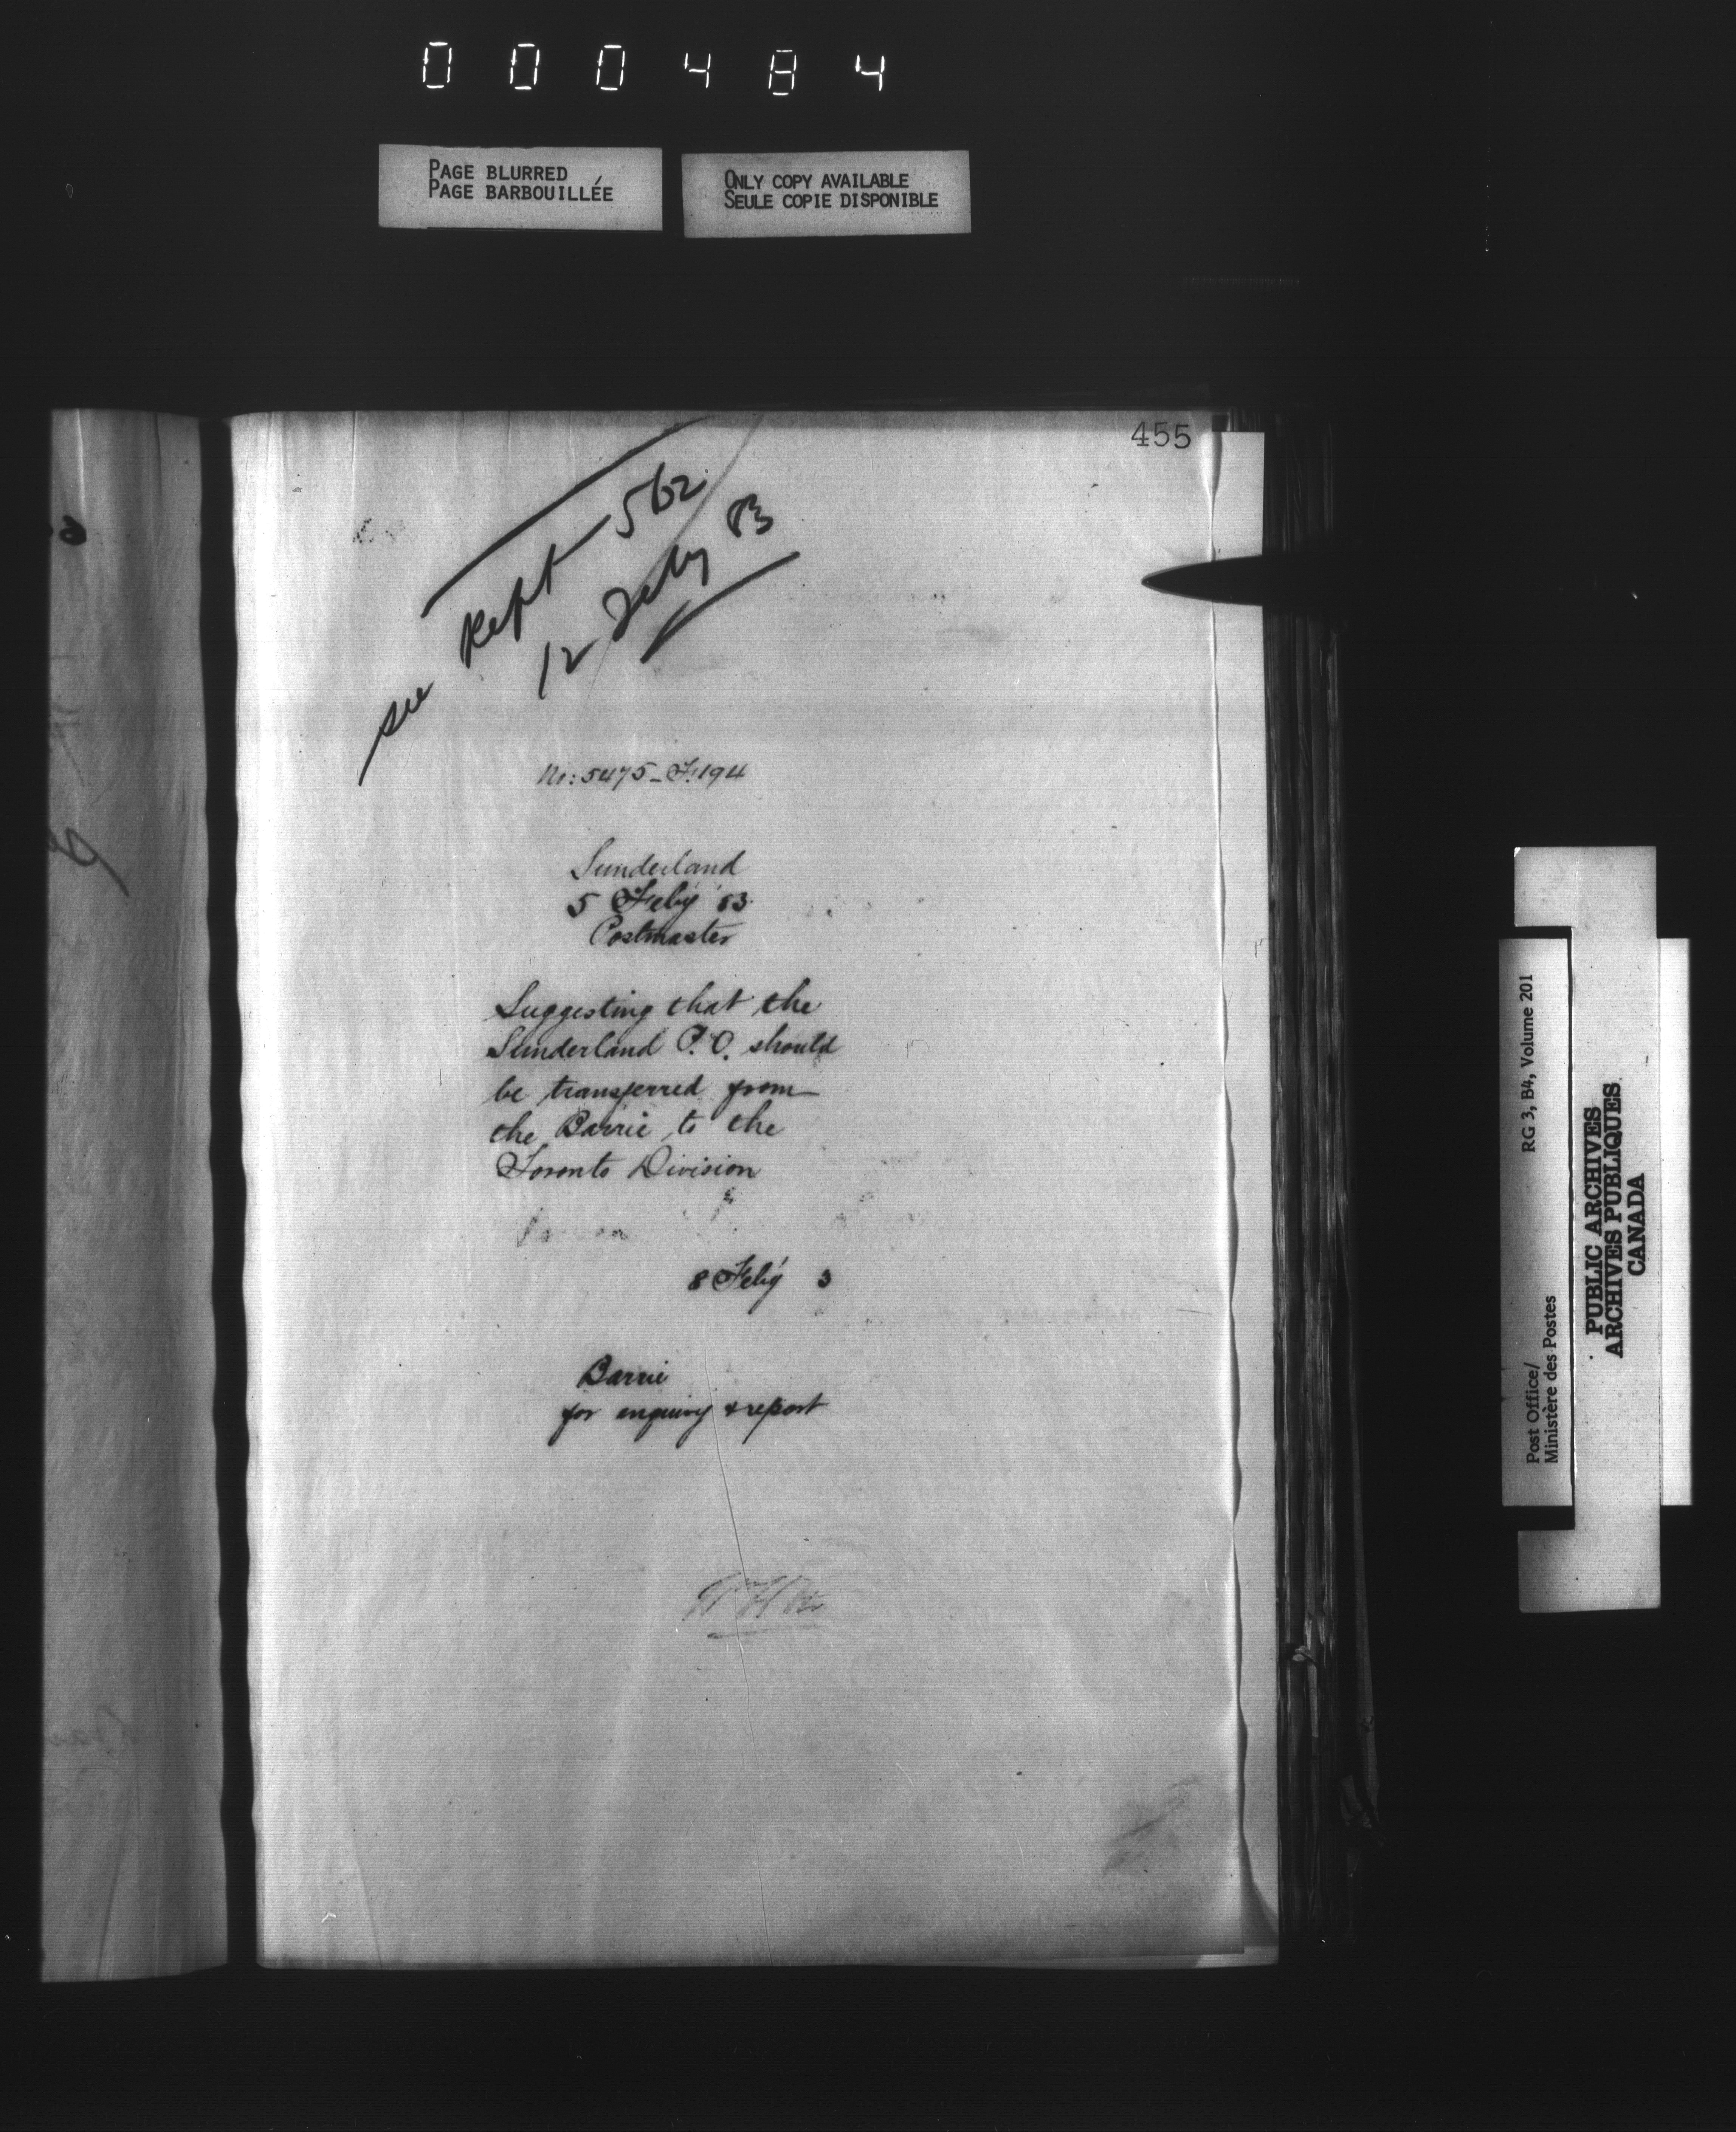 000484
PAGE BLURRED
PAGE BARBOUILLÉE
ONLY COPY AVAILABLE
SEULE COPIE DISPONIBLE
455
see Rept 562
12 Feby 83
No: 5475 - F. 194
Sunderland
5 Feby '83
Postmaster
Suggesting that the
Sunderland P.O. should
be transferred from
the Barrie to the
Toronto Division
8 Feby 3
Barrie
for enquiry & report
RG 3, B4, Volume 201
Post Office/
Ministère des Postes
PUBLIC ARCHIVES
ARCHIVES PUBLIQUES
CANADA